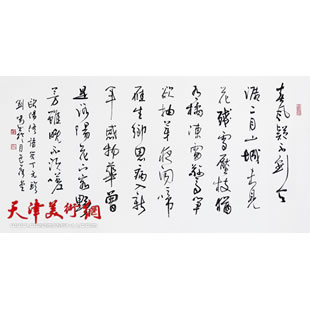 春风疑不到天
涯二月山城未见
花残雪压枝犹
有橘冻雷惊笋
欲抽芽夜闻啼
雁生乡思病入新
年感物华曾
是洛阳花下客野
芳虽晚不须嗟
欧阳修诗答丁元珍
天津美術網